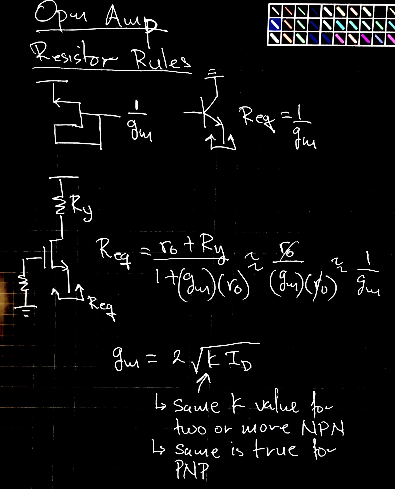 Open Amp
Resistor Rules
1/gm
Req = 1/gm
Ry
Req = (ro + Ry)/(1+(gm)(ro)) ≈ ro/((gm)(ro)) ≈ 1/gm
Req
gm = 2√(k ID)
↳ Same k value for
two or more NPN
↳ Same is true for
PNP